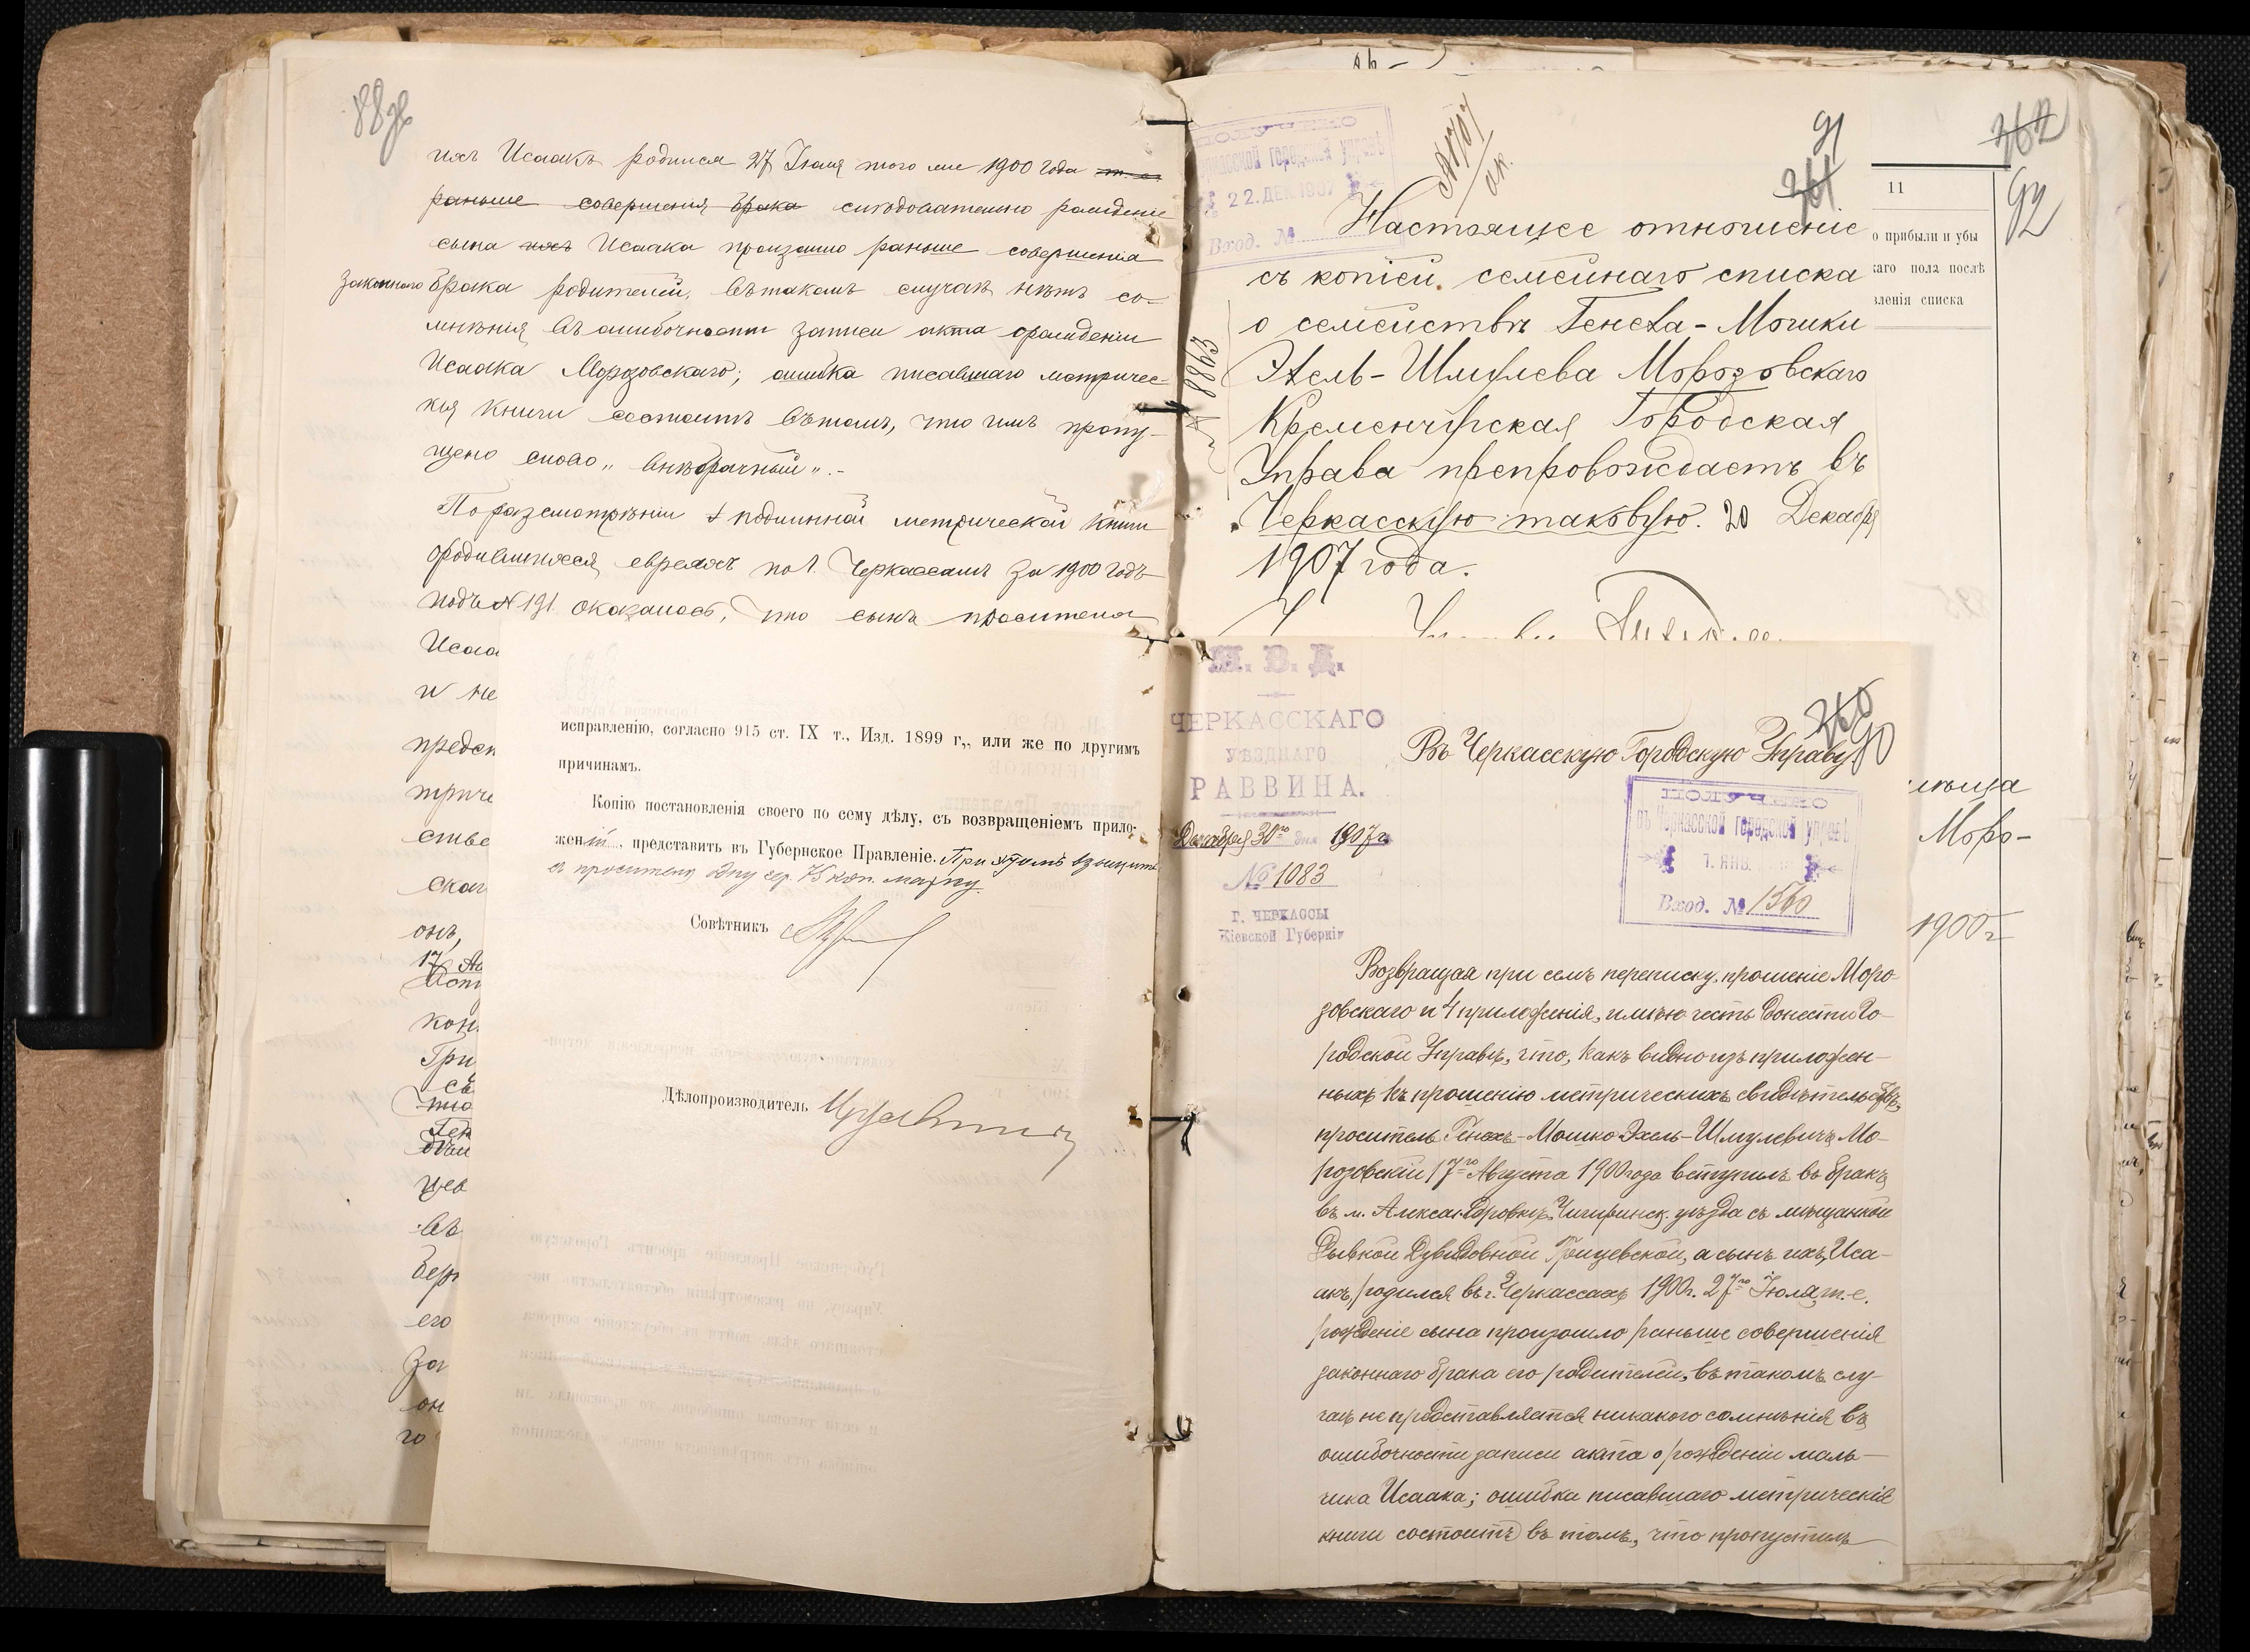 88 об
ихъ Исаакъ родился 27 Іюля того же 1900 года т. е.
раньше совершенія брака слѣдовательно рожденіе
сына ихъ Исаака произошло раньше совершенія
законнаго брака родителей, въ такомъ случаѣ нѣтъ со-
мнѣнія въ ошибочности записи акта о рожденіи
Исаака Морозовскаго; ошибка писавшаго метричес-
кія книги состоитъ въ томъ, что имъ пропу-
щено слово „внѣбрачный".-
По разсмотрѣніи подлинной метрической книги
о родившихся евреяхъ по г. Черкассамъ за 1900 годъ
подъ № 191 оказалось, что сынъ просителя
Исаа
и не
предст
триче
стве
скаг
онъ,
17 Ав
кон
Гри
съ
что
Ген
цев
въ
бер
его
за
он
го
исправленію, согласно 915 ст. IX т., Изд. 1899 г., или же по другимъ
причинамъ.
Копію постановленія своего по сему дѣлу, съ возвращеніемъ прило-
женій, представить въ Губернское Правленіе. При этомъ взыщите
съ просителя одну гер. 75 коп. марку.
Совѣтникъ
Дѣлопроизводитель
ПОЛУЧЕНО
Черкасской Городской управѣ
22. ДЕК. 1907
Вход. №
91
361
№ 8863
Настоящее отношеніе
съ копіей семейнаго списка
о семействѣ Генеха-Мошки
Эхель-Шмулева Морозовскаго
Кременчугская Городская
Управа препровождаетъ въ
Черкасскую таковую. 20 Декабря
1907 года.
362
92
11
о прибыли и убы
каго пола послѣ
вленія списка
Моро-
1900 г
М. В. Д.
ЧЕРКАССКАГО
УѢЗДНАГО
РАВВИНА.
Декабря 30го дня 1907 г.
№ 1083
Г. ЧЕРКАССЫ
Кіевской Губерніи
360
90
Въ Черкасскую Городскую Управу
ПОЛУЧЕНО
въ Черкасской Городской управѣ
1. ЯНВ.
Вход. № 1560
Возвращая при семъ переписку, прошеніе Моро-
зовскаго и 4 приложенія, имѣю честь донести Го-
родской Управѣ, что, какъ видно изъ приложен-
ныхъ къ прошенію метрическихъ свидѣтельствъ,
проситель Генехъ-Мошко Эхель-Шмулевичъ Мо-
розовскій 17го Августа 1900 года вступилъ въ бракъ
въ м. Александровкѣ, Чигиринск. уѣзда съ мѣщанкой
Рывкой Дувидовной Грищевской, а сынъ ихъ, Иса-
акъ, родился въ г. Черкассахъ 1900 г. 27го Іюля, т. е.
рожденіе сына произошло раньше совершенія
законнаго брака его родителей, въ такомъ слу-
чаѣ не представляется никакого сомнѣнія въ
ошибочности записи акта о рожденіи маль-
чика Исаака; ошибка писавшаго метрическія
книги состоитъ въ томъ, что пропустилъ